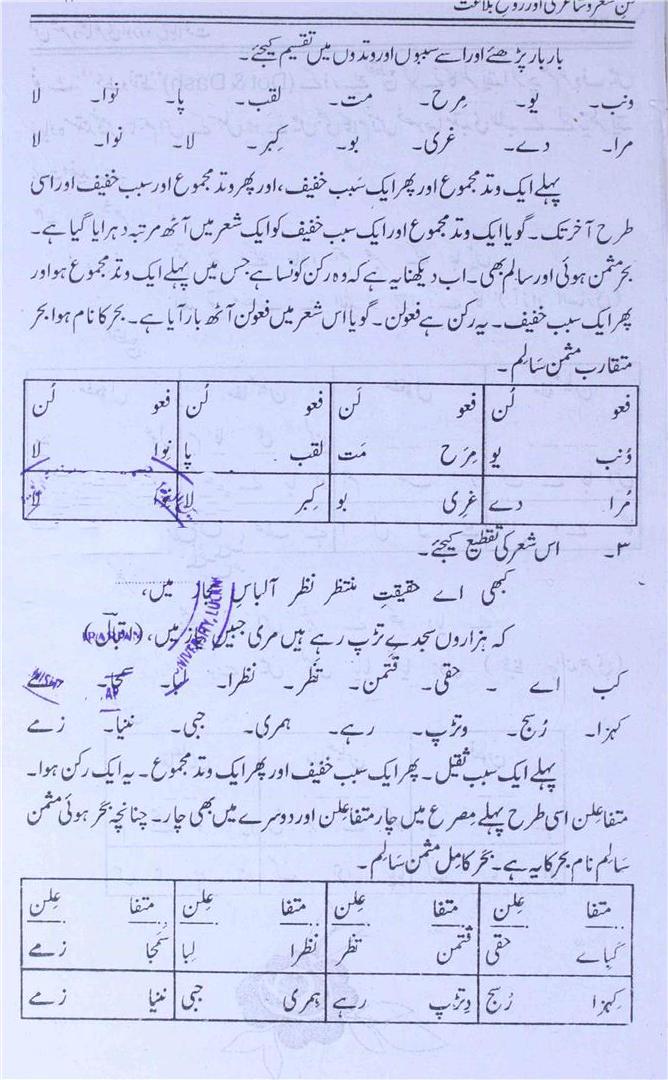 فن شعر و شاعری اور روح بلاغت
بار بار پڑھئے اور اسے سببوں اور وتدوں میں تقسیم کیجئے۔
ونب۔ یو۔ مِرح۔ مت۔ لقب۔ پا۔ نوا۔ لا
مرا۔ دے۔ غری۔ بو۔ کِبر۔ لا۔ نوا۔ لا
پہلے ایک وتد مجموع اور پھر ایک سبب خفیف، اور پھر وتد مجموع اور سبب خفیف اور اسی
طرح آخر تک۔ گویا ایک وتد مجموع اور ایک سبب خفیف کو ایک شعر میں آٹھ مرتبہ دہرایا گیا ہے۔
بحر مثمن ہوئی اور سالم بھی۔ اب دیکھنا یہ ہے کہ وہ رکن کونسا ہے جس میں پہلے ایک وتد مجموع ہو اور
پھر ایک سبب خفیف۔ یہ رکن ہے فعولن۔ گویا اس شعر میں فعولن آٹھ بار آیا ہے۔ بحر کا نام ہوا بحر
متقارب مثمن سَالِم۔
فعو لُن فعو لَن فعو لُن فعو لُن
وُنب یو مِرَح مَت لقب پا نِوا لا
مُرا دے غرِی بو کِبر لا لا
۳۔ اس شعر کی تقطیع کیجئے۔
کبھی اے حقیقتِ منتظر نظر آ لباسِ مجاز میں،
کہ ہزاروں سجدے تڑپ رہے ہیں مری جبین نیاز میں، (اقبال)
کب اے ۔ حقی۔ قَتمن۔ تَظَر۔ نظرا۔ لبا۔ مجا۔
کہزا۔ رُسج۔ دتڑپ۔ رہے۔ ہمری۔ جبی۔ ننیا۔ زمے
پہلے ایک سبب ثقیل۔ پھر ایک سبب خفیف اور پھر ایک وتد مجموع۔ یہ ایک رکن ہوا۔
متفاعِلن اسی طرح پہلے مِصرع میں چار متفاعلن اور دوسرے میں بھی چار۔ چنانچہ بحر ہوئی مثمن
سَالِم نام بحر کا یہ ہے۔ بحَر کامِل مثمن سَالِم۔
متفا عِلن متفا عِلن متفا عِلن متفا عِلن
کباے حقی قتمن تظر نظرا لِبا سمجا زمے
کہزا رُسج دِتڑپ رہے ہمری جبی ننیا زمے